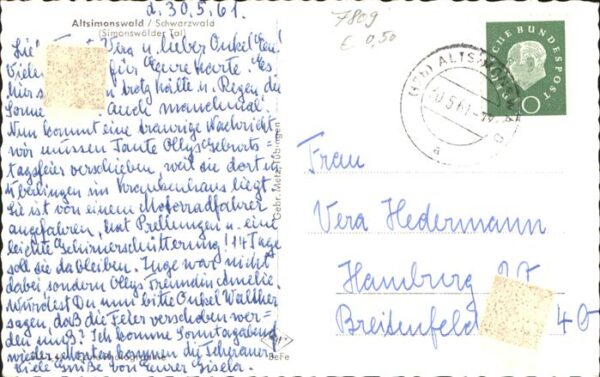 d. 30.5.61.
Altsimonswald / Schwarzwald
(Simonswälder Tal)
Vera u. lieber Onkel
für Eure Karte. Es
trotz Kälte u. Regen die
Sonne auch manchmal.
Nun kommt eine traurige Nachricht
wir müssen Tante Ollys Geburts-
tagsfeier verschieben, weil sie dort in
Überlingen im Krankenhaus liegt.
Sie ist von einem Motorradfahrer
angefahren, hat Prellungen u. eine
leichte Gehirnerschütterung! 14 Tage
soll sie da bleiben. Inge war nicht
dabei sondern Ollys Freundin Amelie.
Würdest Du nun bitte Onkel Walther
sagen, daß die Feier verschoben wer-
den muß? Ich komme Sonntagabend
wieder
Viele Grüße von Eurer Gisela.
Gebr. Metz, Tübingen
BeFe
7809
€ 0,50
DEUTSCHE BUNDESPOST
10
ALTSIMONSWALD
30.5.61
a
Frau
Vera Hedermann
Hamburg
Breitenfeld 40